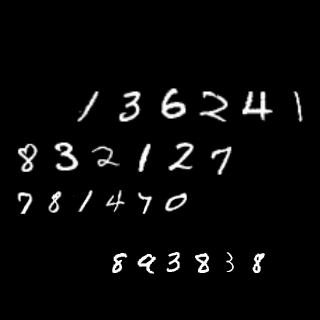 136241
832127
781470
893838